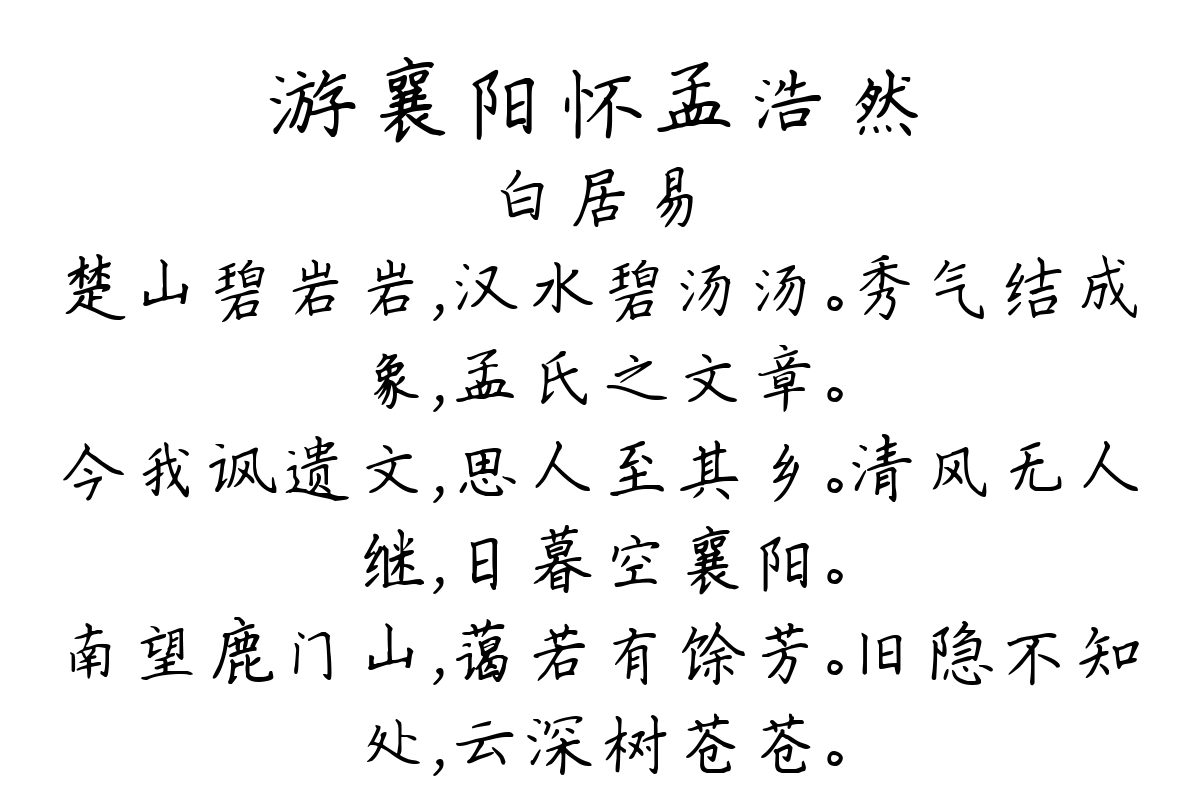 游襄阳怀孟浩然
白居易
楚山碧岩岩,汉水碧汤汤。秀气结成
象,孟氏之文章。
今我讽遗文,思人至其乡。清风无人
继,日暮空襄阳。
南望鹿门山,蔼若有馀芳。旧隐不知
处,云深树苍苍。